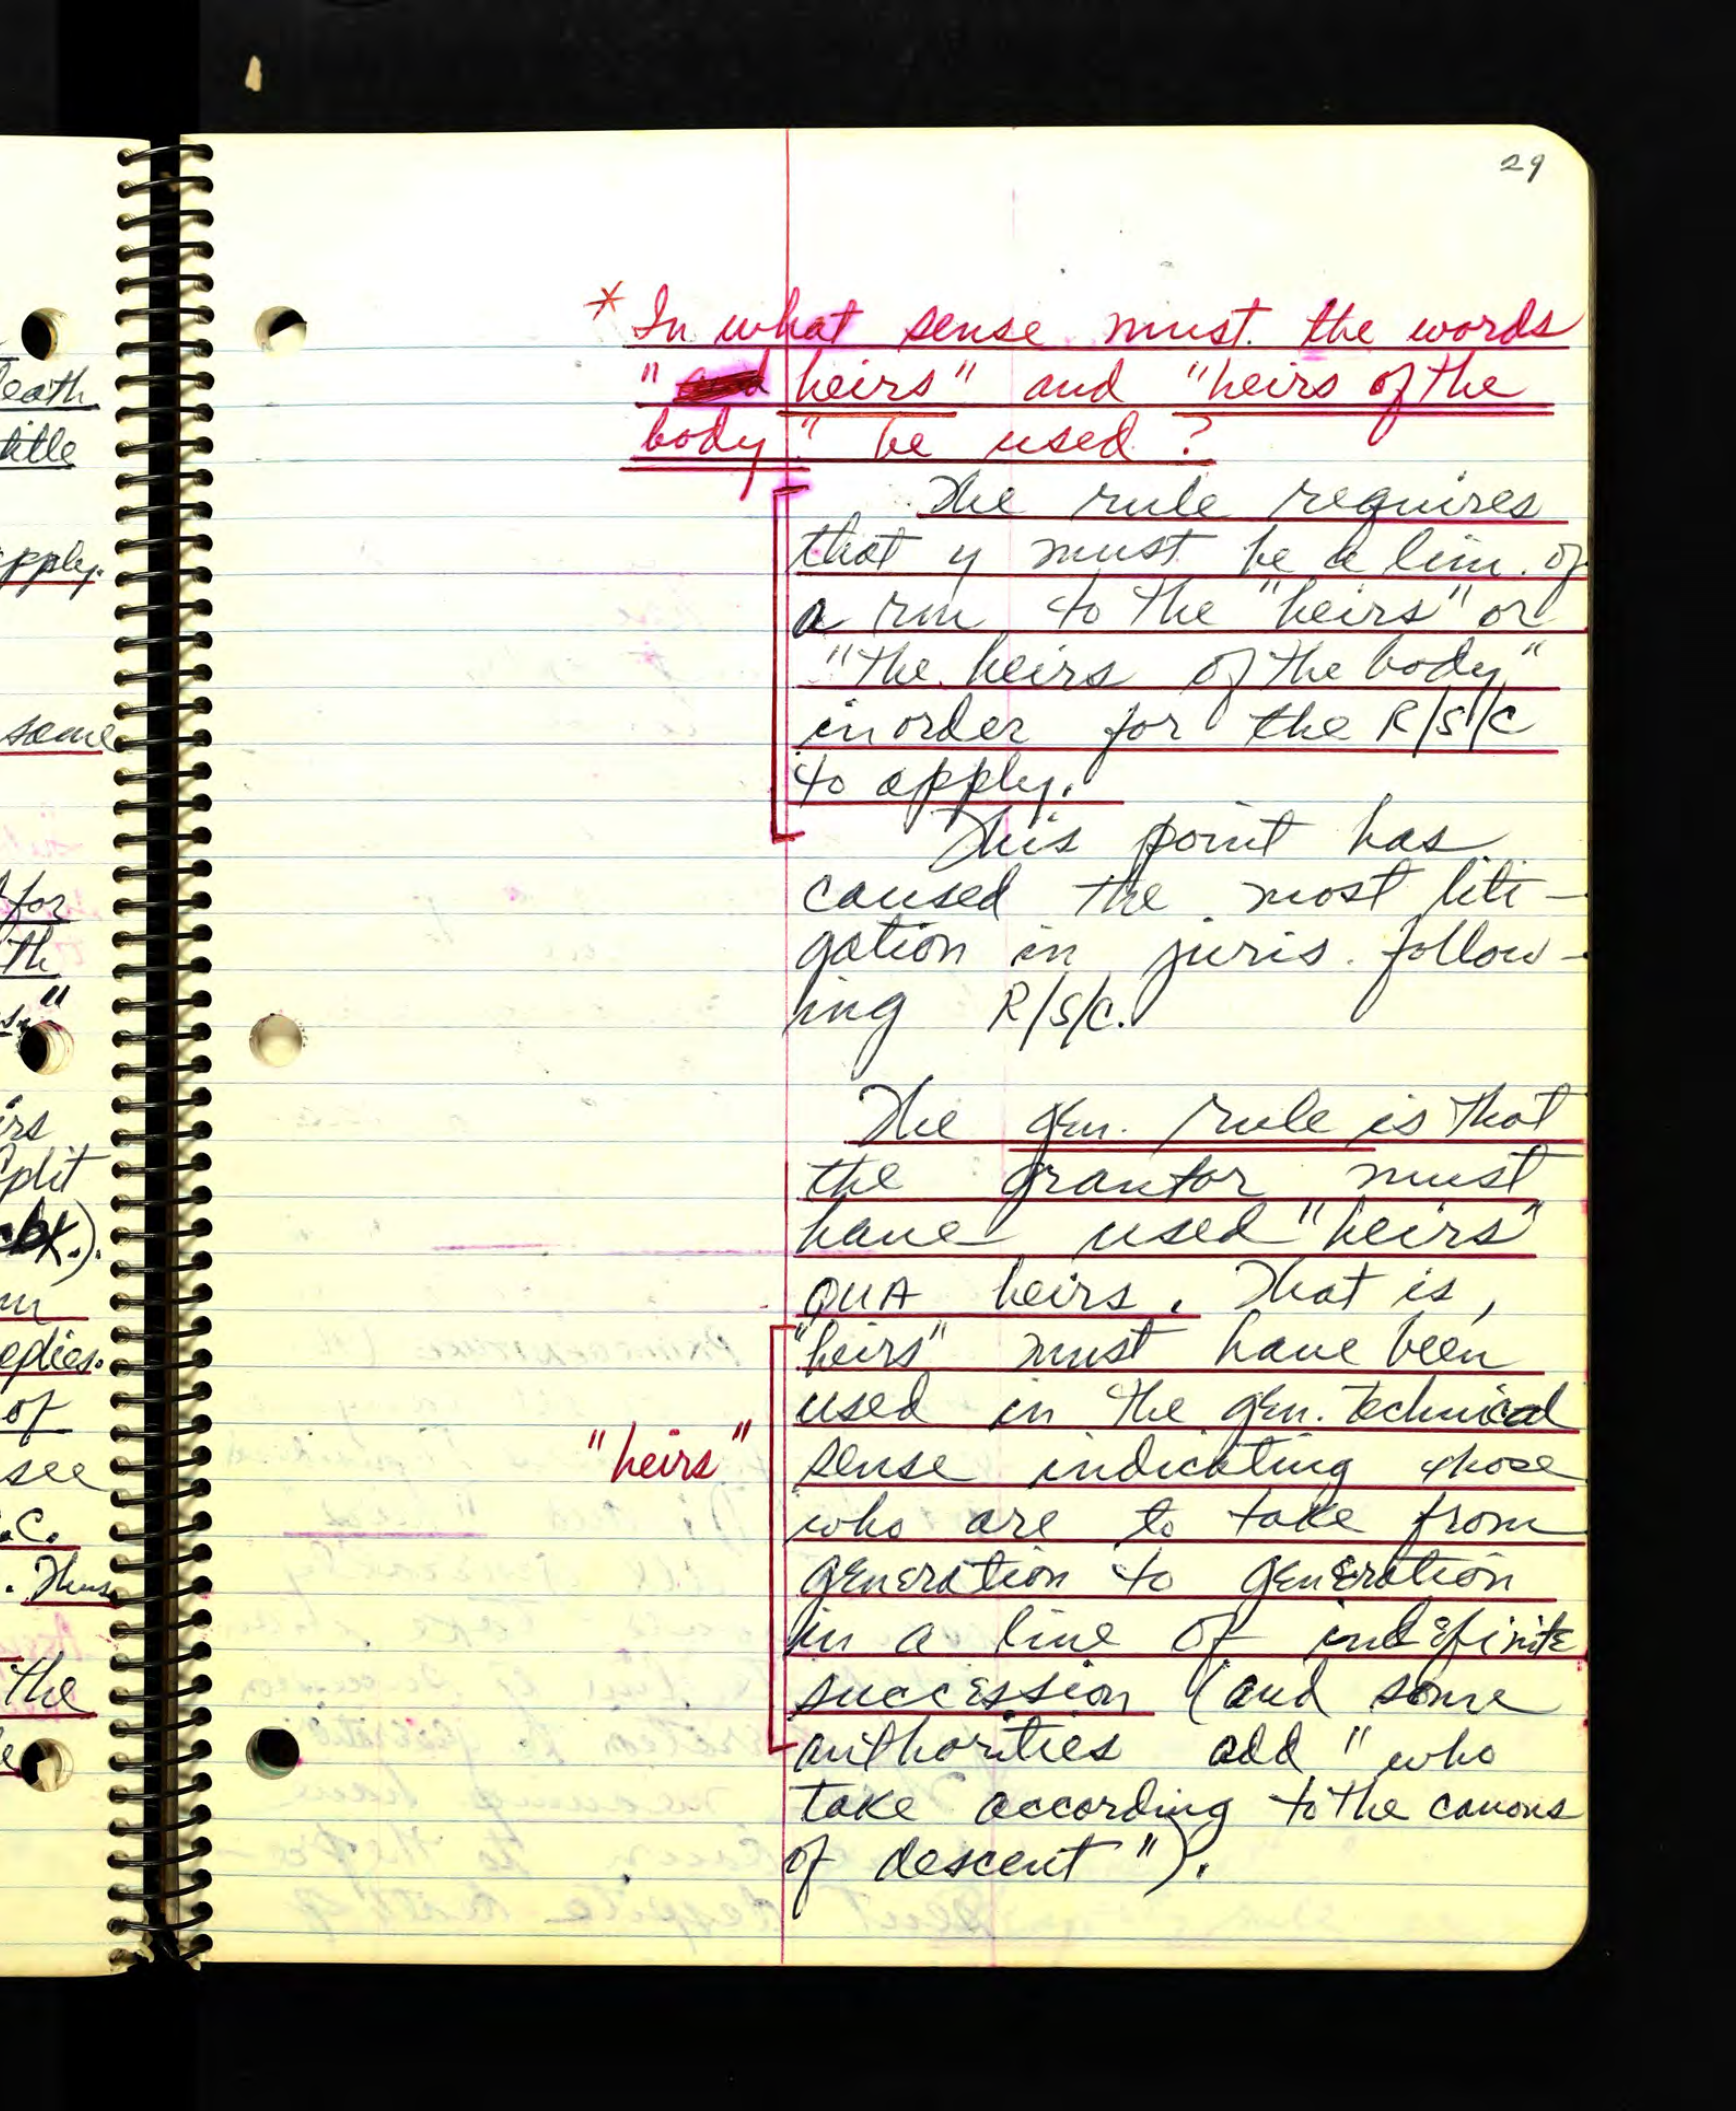 29
* In what sense must the words
" heirs" and "heirs of the
body" be used?
The rule requires
that y must be a lim. of
a rm to the "heirs" or
"the heirs of the body"
in order for the R/S/C
to apply.
This point has
caused the most liti-
gation in juris. follow-
ing R/S/C.
The gen. rule is that
the grantor must
have used "heirs"
QUA heirs. That is,
"heirs" must have been
used in the gen. technical
"heirs"
sense indicating those
who are to take from
generation to generation
in a line of indefinite
succession (and some
authorities add "who
take according to the canons
of descent").
eath
title
pply.
same
for
th
irs
split
edies.
of
see
.C.
. Thus
the